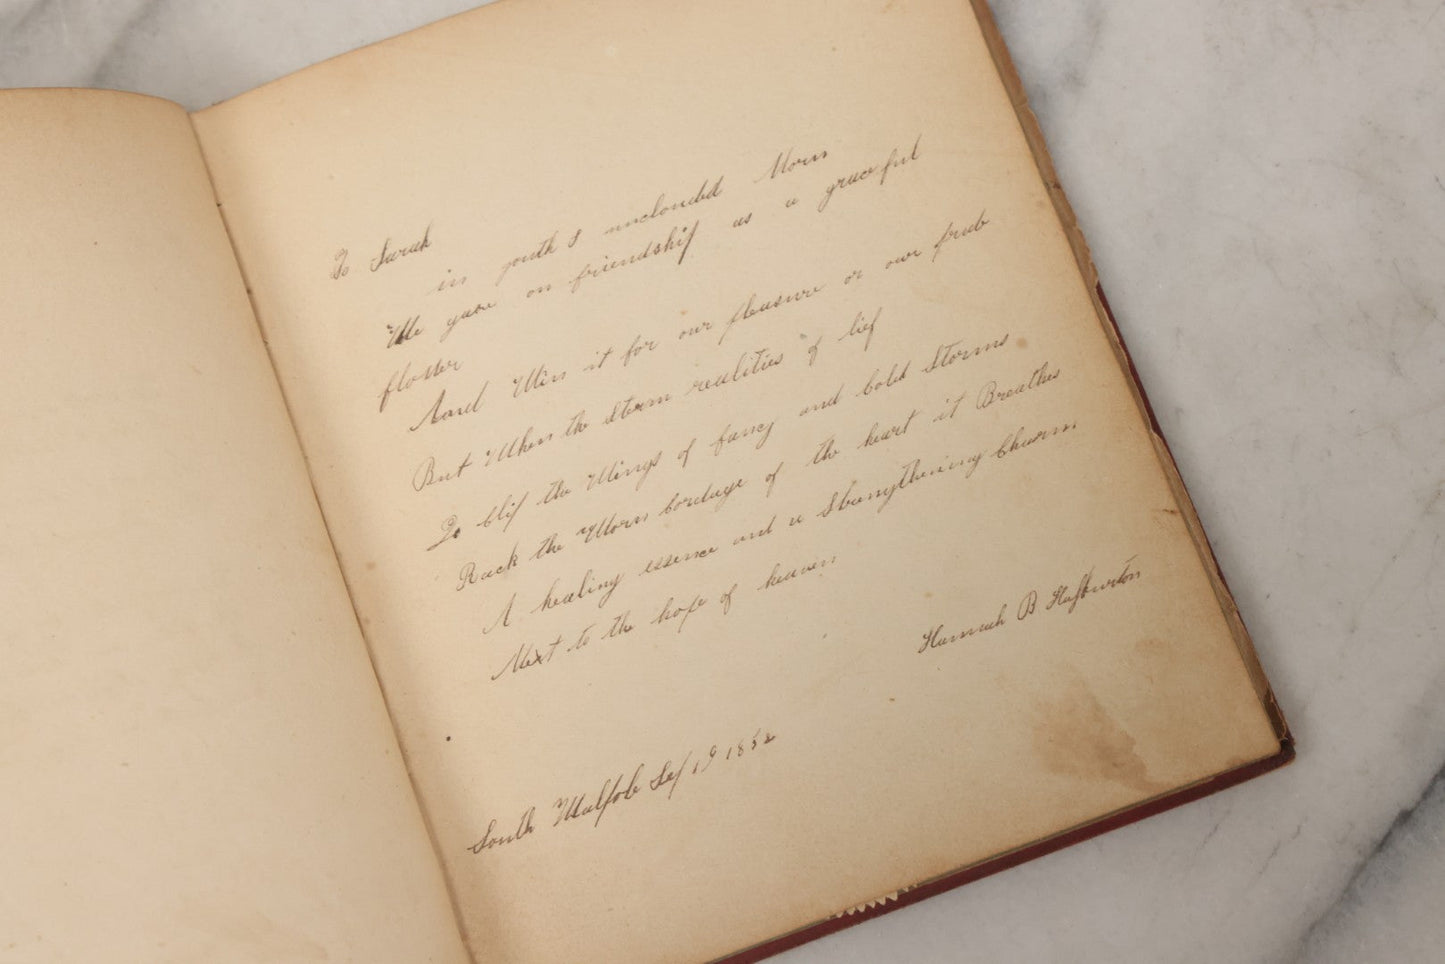 To Sarah
in youth s unclouded Morn
We gase on friendship as a graceful
flower
And Win it for our pleasure or our
But When the Stern realities of lief
To clip the Wings of fancy and cold Storms
Rack the Worn cordage of the heart it Breathes
A healing essence and a Strengthening Charm.
Next to the hope of heaven
Hannah B
South Walpole Sep 19 1852